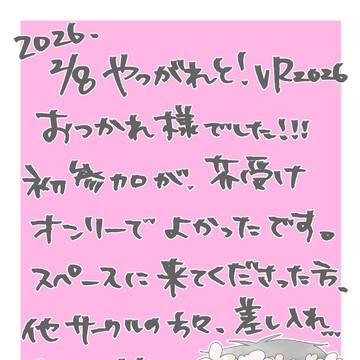 2026.
2/8 やつがれと！VR2026
おつかれ様でした!!!
初参加が、茶受け
オンリーで よかったです。
スペースに来てくださった方、
他サークルの方々、差し入れ...